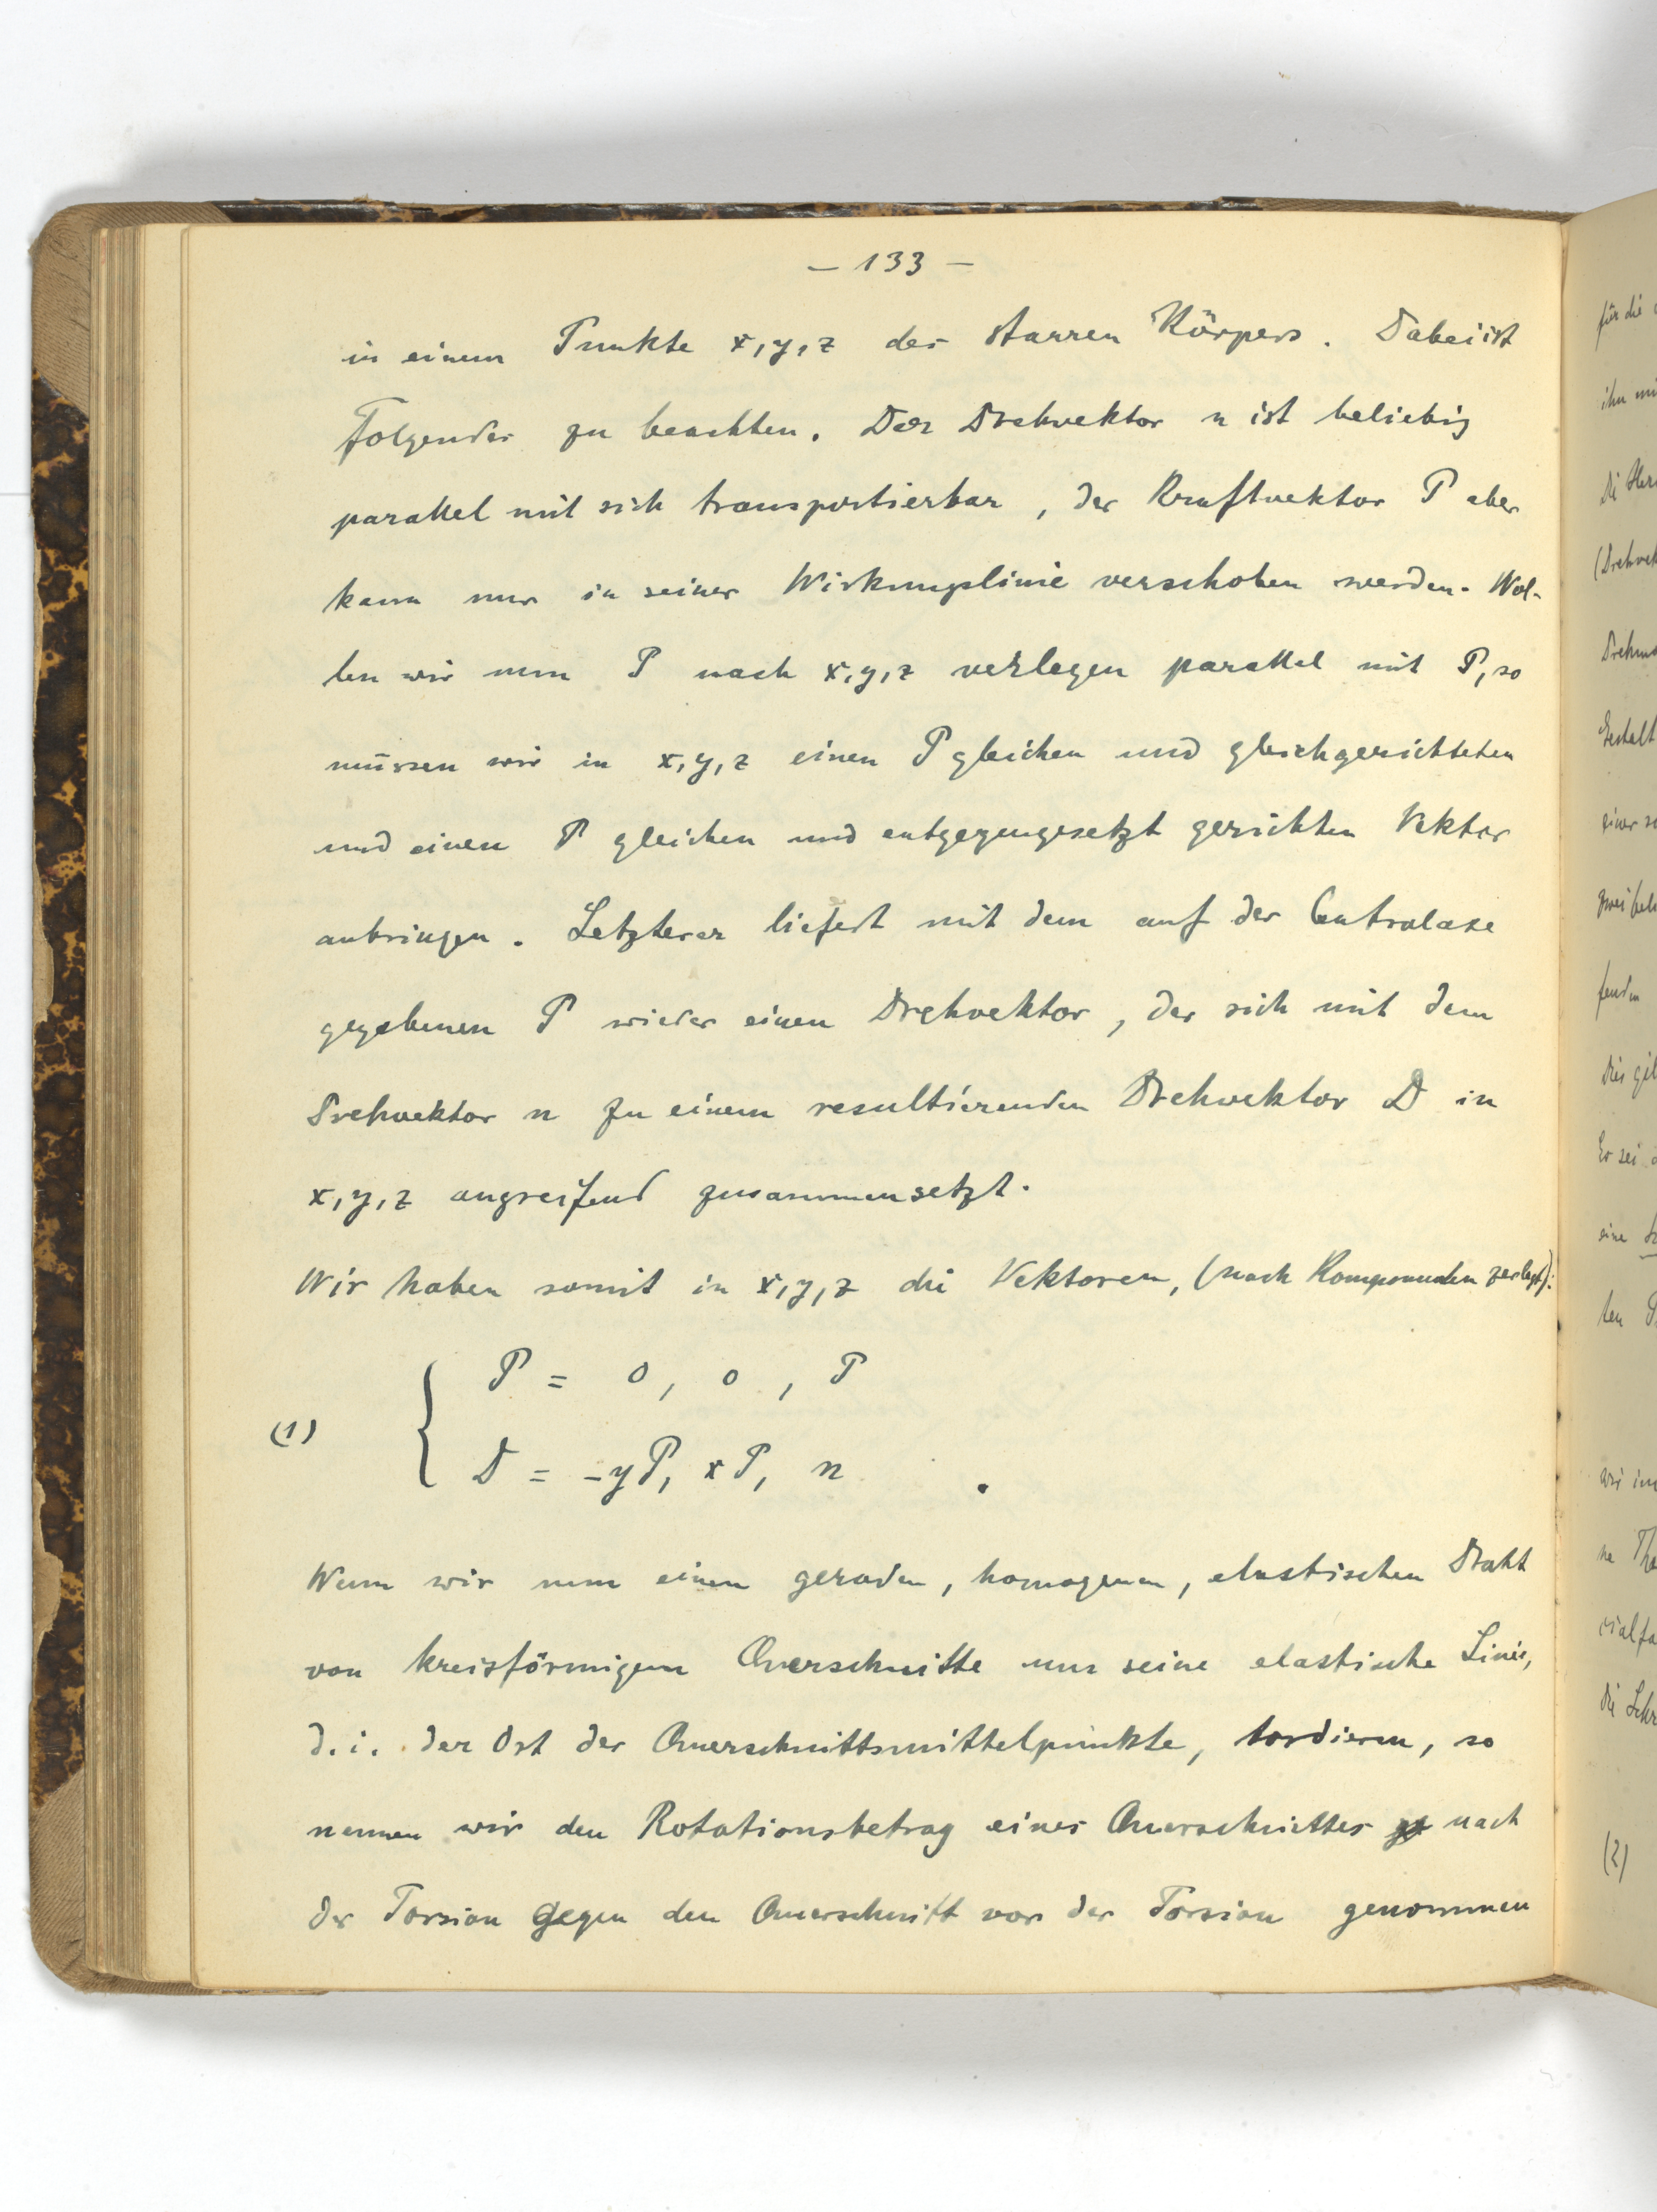 – 133 –
in einem Punkte x, y, z des starren Körpers. Dabei ist
Folgendes zu beachten. Der Drehvektor n ist beliebig
parallel mit sich transportierbar, der Kraftvektor P aber
kann nur in seiner Wirkungslinie verschoben werden. Wol-
len wir nun P nach x, y, z verlegen parallel mit P, so
müssen wir in x, y, z einen P gleichen und gleichgerichteten
und einen P gleichen und entgegengesetzt gerichten Vektor
anbringen. Letzterer liefert mit dem auf der Centralaxe
gegebenen P wieder einen Drehvektor, der sich mit dem
Drehvektor n zu einem resultierenden Drehvektor D in
x, y, z angreifend zusammensetzt.
Wir haben somit in x, y, z die Vektoren, (nach Komponenten zerlegt):
P = 0, 0, P
(1)
D = -yP, xP, n .
Wenn wir nun einen geraden, homogenen, elastischen Draht
von kreisförmigem Querschnitte um seine elastische Linie,
d.i. der Ort der Querschnittsmittelpunkte, tordieren, so
nennen wir den Rotationsbetrag eines Querschnittes nach
der Torsion gegen den Querschnitt vor der Torsion genommen
für die
ihn
(Drehvek
Gestalt
einer
zwei
fenden
Dies
Er sei
eine
ten
wir
ne
die
(2)